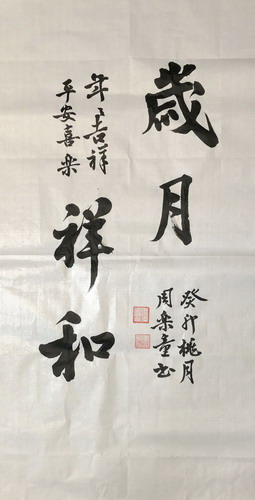 歲月
祥和
年々吉祥
平安喜樂
癸卯桃月
周樂童书